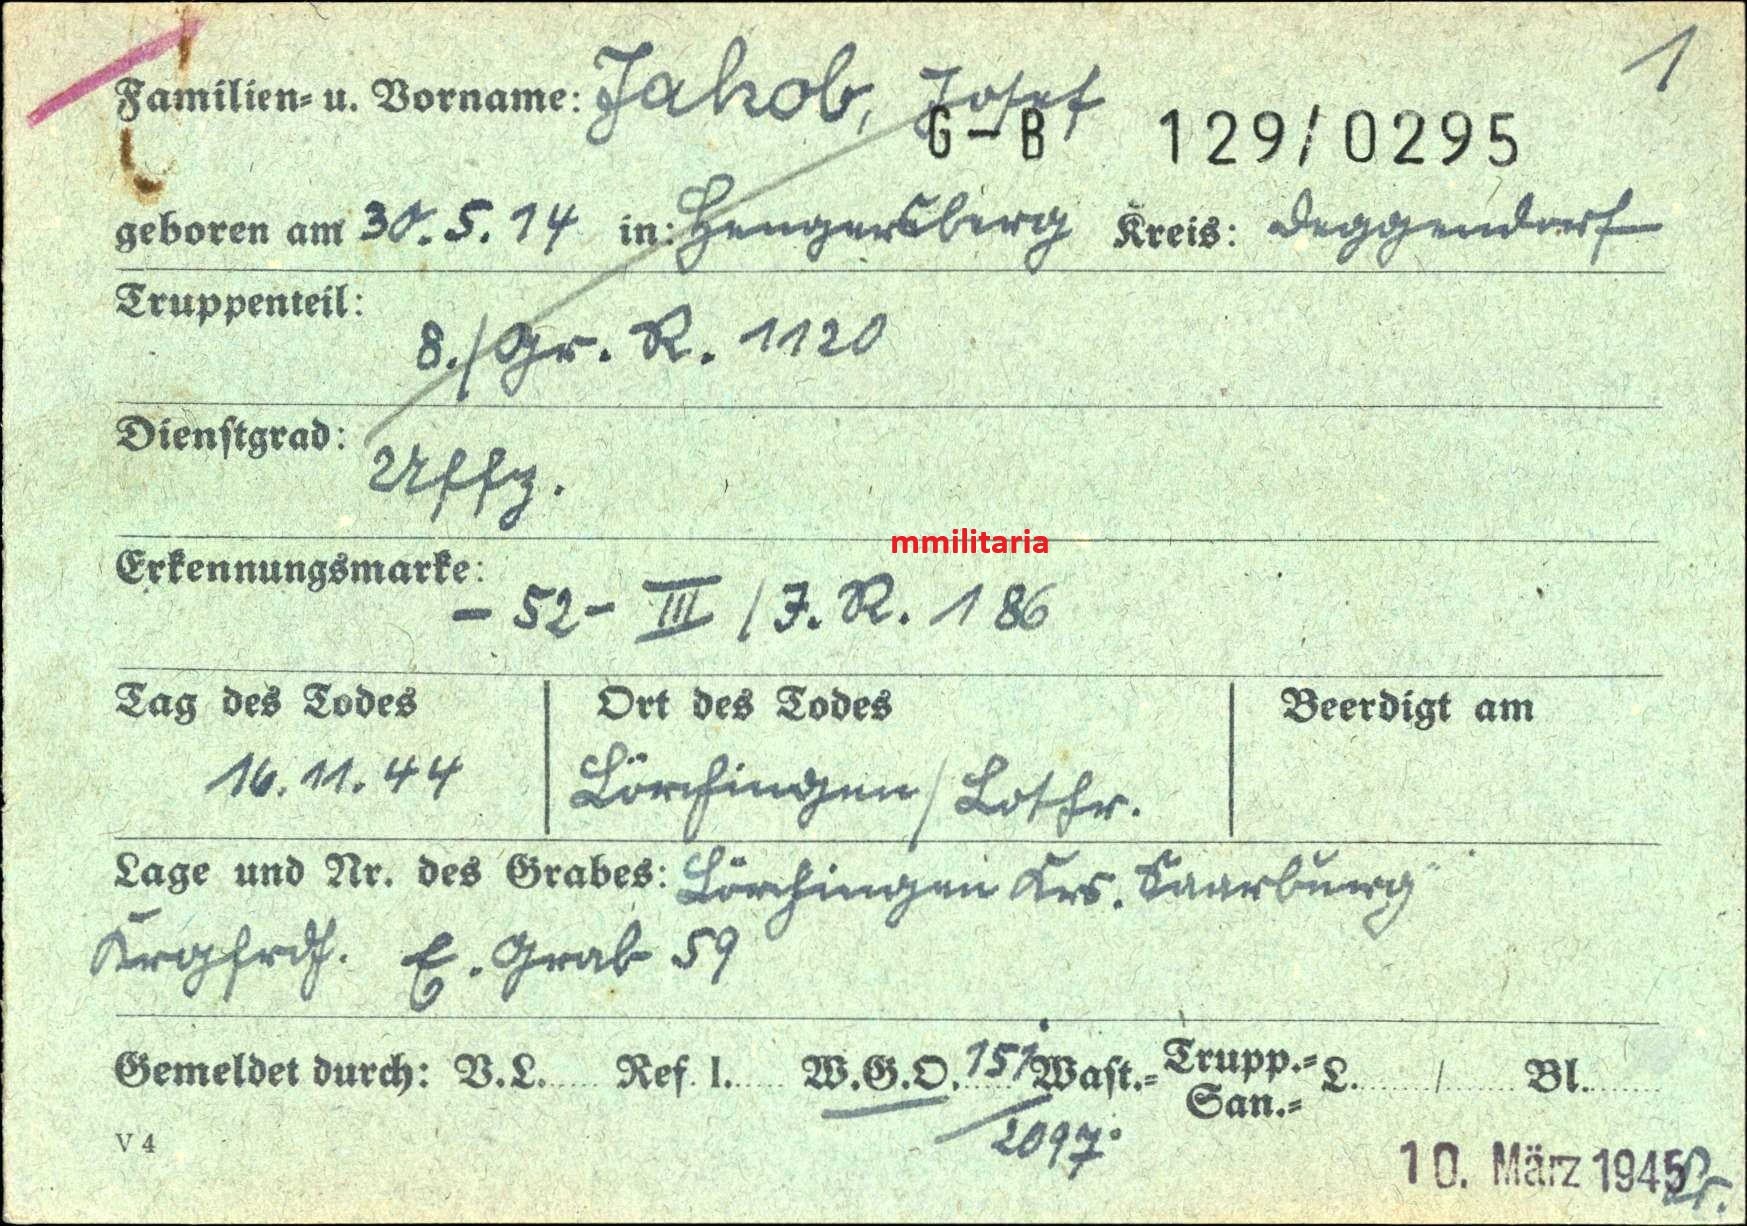 1
Familien= u. Vorname: Jakob, Josef
G–B 129/0295
geboren am 30.5.14 in: Hengersberg Kreis: Deggendorf
Truppenteil:
8./Gr. R. 1120
Dienstgrad:
Uffz.
mmilitaria
Erkennungsmarke:
– 52 – III / J. R. 186
Tag des Todes Ort des Todes Beerdigt am
16.11.44 Lörchingen / Lothr.
Lage und Nr. des Grabes: Lörchingen Krs. Saarburg
Krgfrdf. E. Grab 59
Gemeldet durch: V.L...... Ref. I...... W.G.O. 151 Wast.= Trupp.= L......../........ Bl.......
San.=
2097
V 4
10. März 1945